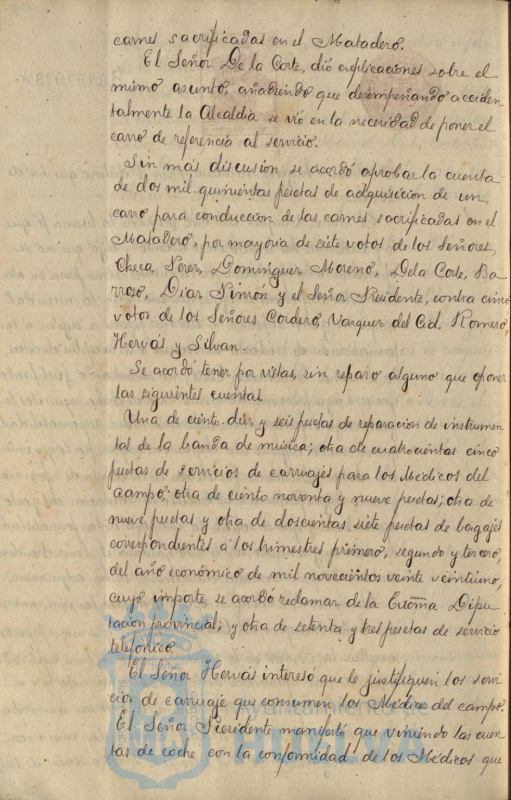 carnes sacrificadas en el Matadero.
El Señor De la Corte, dió explicaciones sobre el
mismo asunto, añadiendo que desempeñando acciden-
talmente la Alcaldia se vió en la necesidad de poner el
carro de referencia al servicio.
Sin más discusion se acordó aprobar la cuenta
de dos mil quinientas pesetas de adquisicion de un
carro para conduccion de las carnes sacrificadas en el
Matadero, por mayoria de siete votos de los Señores,
Checa, Perez, Dominguez Moreno, De la Corte, Ba-
rroso, Diaz Pinzón y el Señor Presidente, contra cinco
votos de los Señores Cordero, Vazquez del Cid, Romero,
Hervás y Silvan.
Se acordó tener por vistas, sin reparo alguno que oponer
las siguientes cuentas.
Una de ciento diez y seis pesetas de reparacion de instrumen-
tos de la banda de música; otra de cuatrocientas cinco
pesetas de servicios de carruajes para los Médicos del
campo; otra de ciento noventa y nueve pesetas; otra de
nueve pesetas y otra de doscientas siete pesetas de bagajes
correspondientes á los trimestres primero, segundo y tercero,
del año económico de mil novecientos veinte veintiuno,
cuyo importe se acordó reclamar de la Extma Dipu-
tacion provincial; y otra de setenta y tres pesetas de servicio
telefonico.
El Señor Hervás interesó que le justifiquen los servi-
cios de carruaje que consumen los Médicos del campo.
El Señor Presidente manifestó que viniendo las cuen-
tas de coche con la conformidad de los Médicos que
Ayuntamiento de
HUELVA